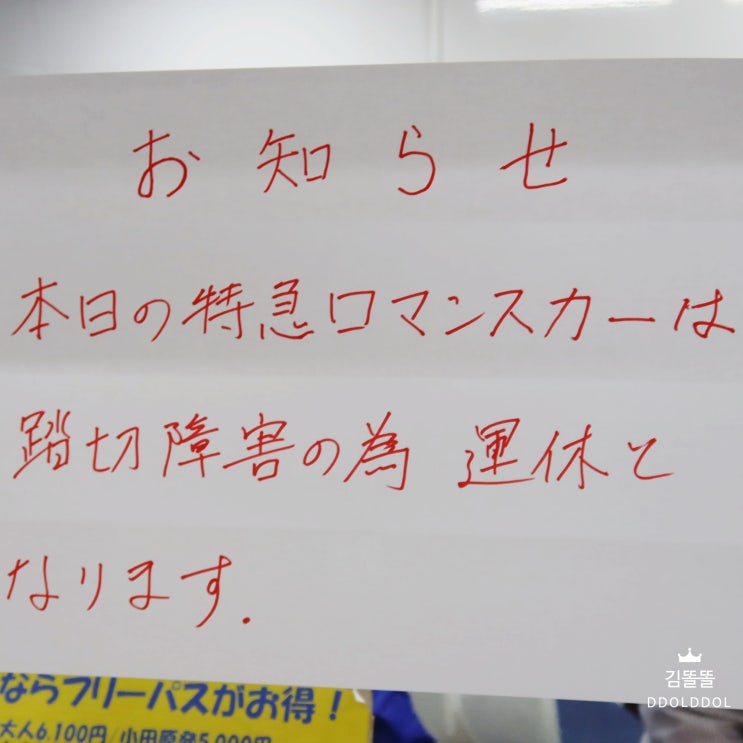 お知らせ
本日の特急ロマンスカーは
踏切障害の為 運休と
なります.
ならフリーパスがお得！
大人6,100円/小田原発5,000円
김똘똘
DDOLDDOL